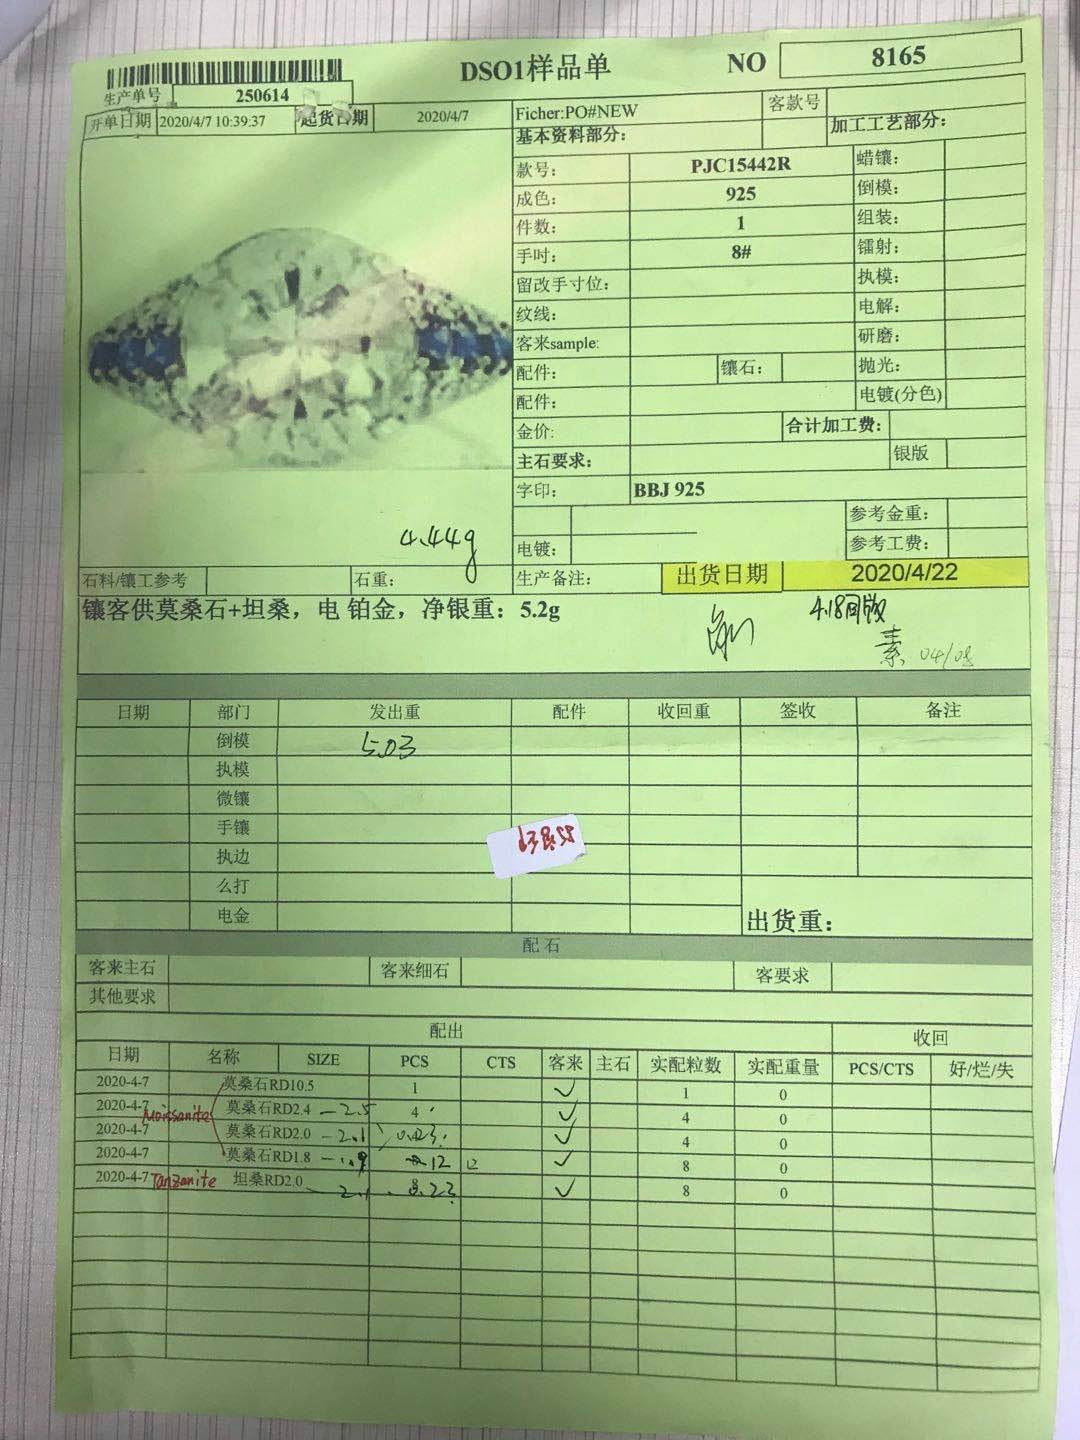 DSO1样品单
NO 8165
生产单号 250614
开单日期 2020/4/7 10:39:37 起货日期 2020/4/7 Ficher:PO#NEW 客款号
基本资料部分: 加工工艺部分:
款号: PJC15442R 蜡镶:
成色: 925 倒模:
件数: 1 组装:
手吋: 8# 镭射:
留改手寸位: 执模:
纹线: 电解:
客来sample: 研磨:
配件: 镶石: 抛光:
配件: 电镀(分色)
金价: 合计加工费:
主石要求: 银版
字印: BBJ 925
参考金重:
4.44g
电镀: 参考工费:
石料/镶工参考 石重: 生产备注: 出货日期 2020/4/22
镶客供莫桑石+坦桑，电 铂金，净银重：5.2g
4.18回版
素 04/08
日期 部门 发出重 配件 收回重 签收 备注
倒模 5.03
执模
微镶
手镶
执边
么打
电金
出货重：
配 石
客来主石 客来细石 客要求
其他要求
配出 收回
日期 名称 SIZE PCS CTS 客来 主石 实配粒数 实配重量 PCS/CTS 好/烂/失
2020-4-7 莫桑石RD10.5 1 ✓ 1 0
2020-4-7 莫桑石RD2.4 -2.5 4 ✓ 4 0
Moissanite
2020-4-7 莫桑石RD2.0 -2.1 ✓ 4 0
2020-4-7 莫桑石RD1.8 -1.9 12 ✓ 8 0
2020-4-7 Tanzanite 坦桑RD2.0 -2.1 ✓ 8 0